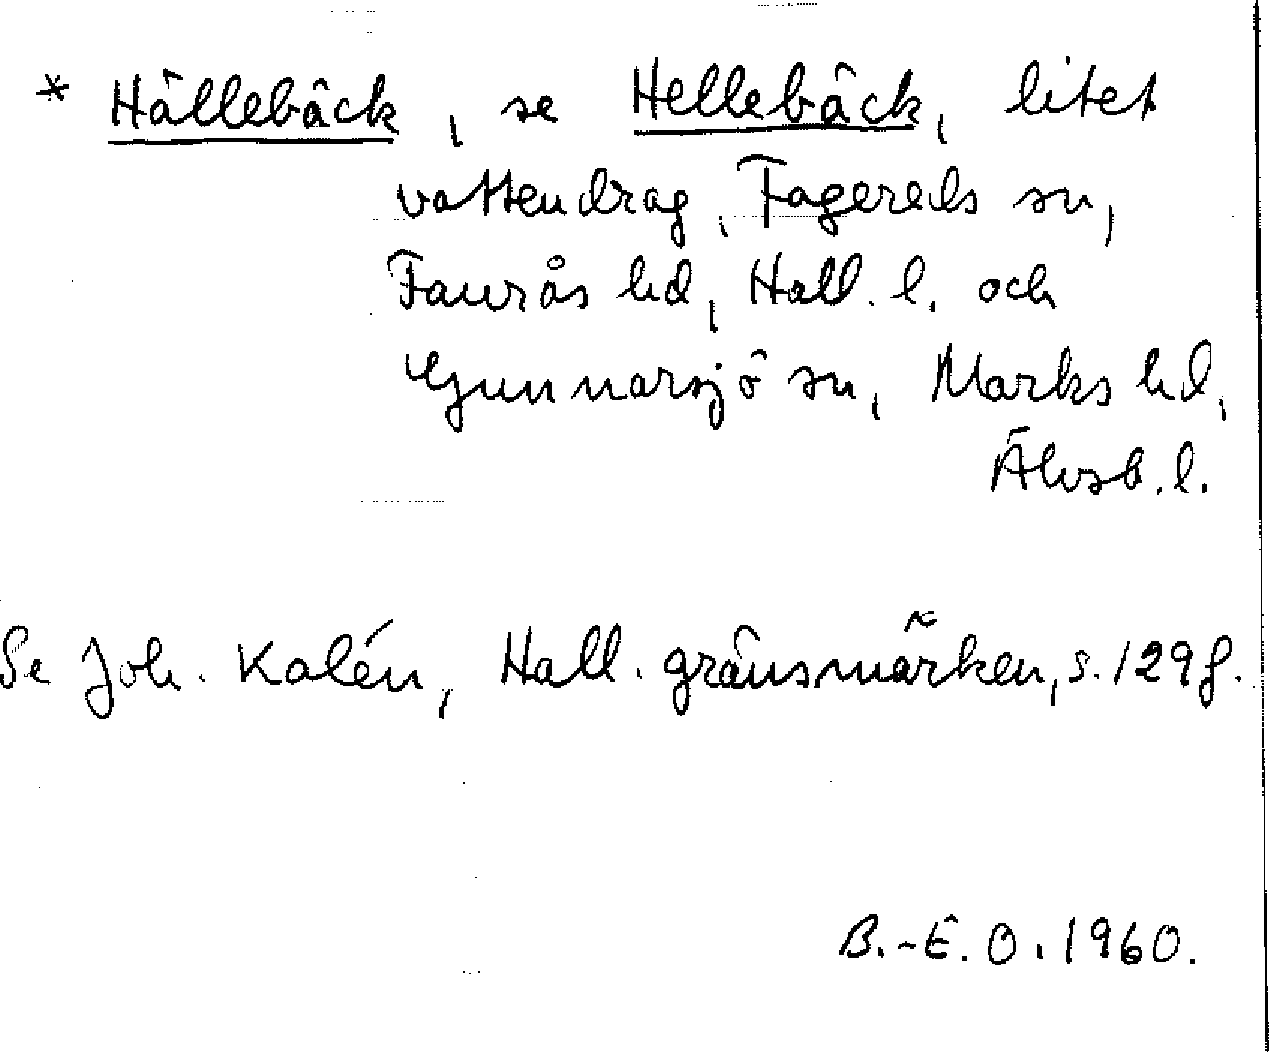 * Hällebäck, se Hellebäck, litet
vattendrag, Fagereds sn,
Faurås hd, Hall. l. och
Gunnarsjö sn, Marks hd,
Älvsb. l.
Se Joh. Kalén, Hall. gränsmärken, s. 129 f.
B.-E. O. 1960.